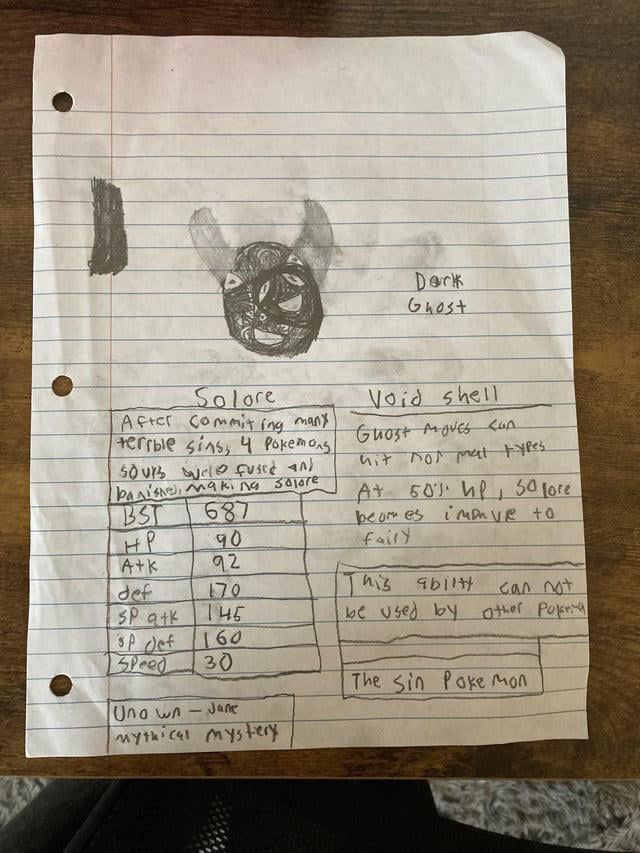 Dark
Ghost
Solore
After commiting many
terrible sins, 4 Pokemons
souls were fused and
banished, making solore
BST 687
HP 90
Atk 92
def 170
SP atk 145
SP def 160
Speed 30
Unown - Jane
mythical mystery
Void shell
Ghost moves can
hit normal types
At 50% HP, Solore
becomes immune to
fairy
This ability can not
be used by other
The Sin Pokemon